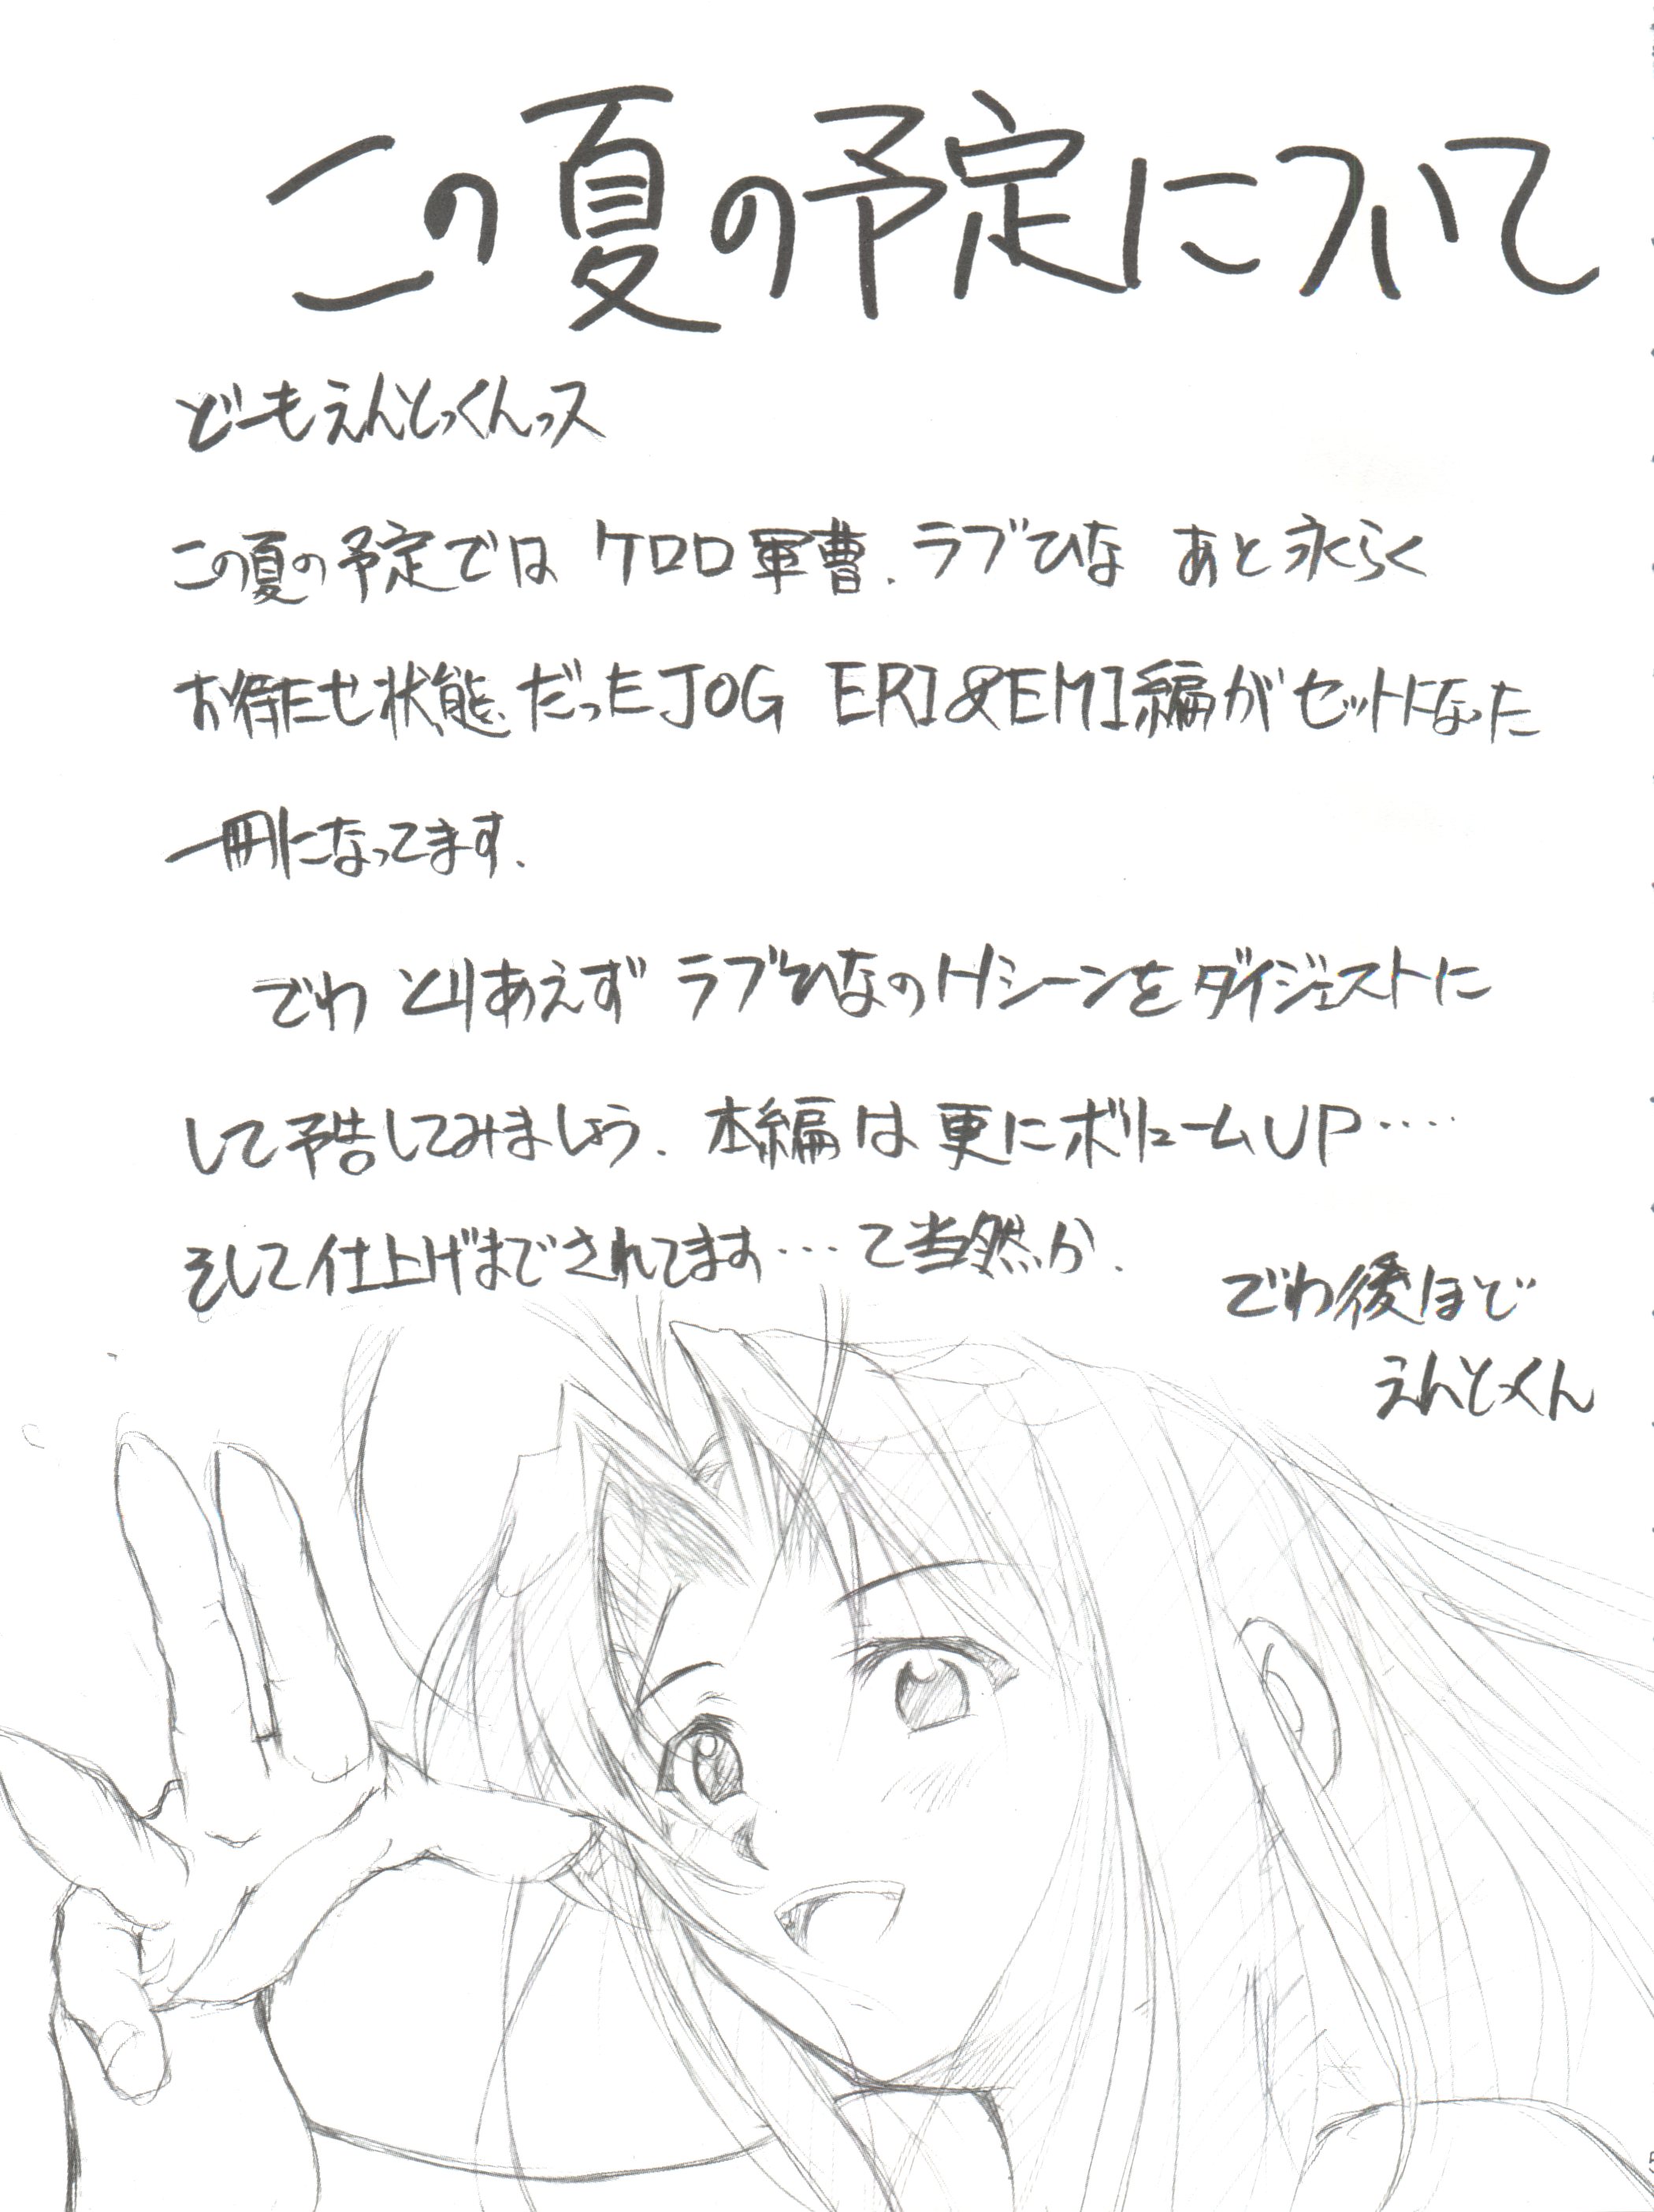 この夏の予定について
どーもえんとっくんっス
この夏の予定では ケロロ軍曹.ラブひな あと永らく
お待たせ状態だったJOG ERI&EMI編がセットになった
一冊になってます.
でわ とりあえず ラブひなのHシーンをダイジェストに
して予告してみましょう. 本編は更にボリュームUP‥‥
そして仕上げまでされてます‥‥て当然か.
でわ後ほど
えんとっくん
5